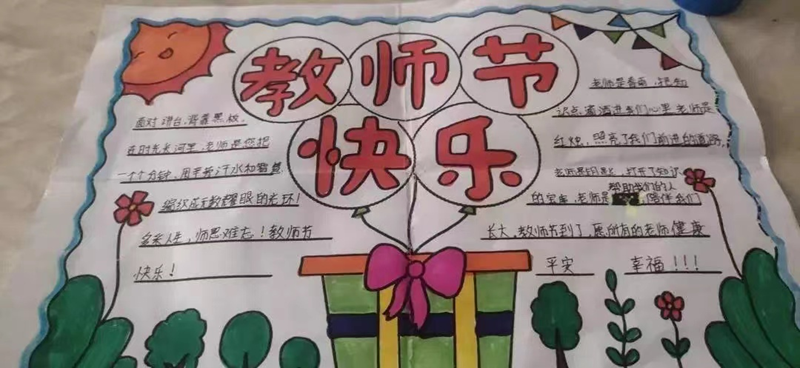 教师节
快乐
面对讲台,背靠黑板,
在时光长河里,老师是您把
一个个分钟,用
汗水和智慧
编织成
耀眼的光环!
人生,师恩难忘!教师节
快乐!
老师是春雨,把知
识点滴洒进我们心里,老师是
红烛,照亮了我们前进的道路,
老师是钥匙,打开了知识
帮助我们的人
的宝库,老师是
,陪伴我们
长大,教师节到了,愿所有的老师健康
平安 幸福!!!